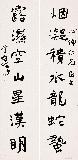 烟凝積水龍蛇蟄
露濕空山星漢明